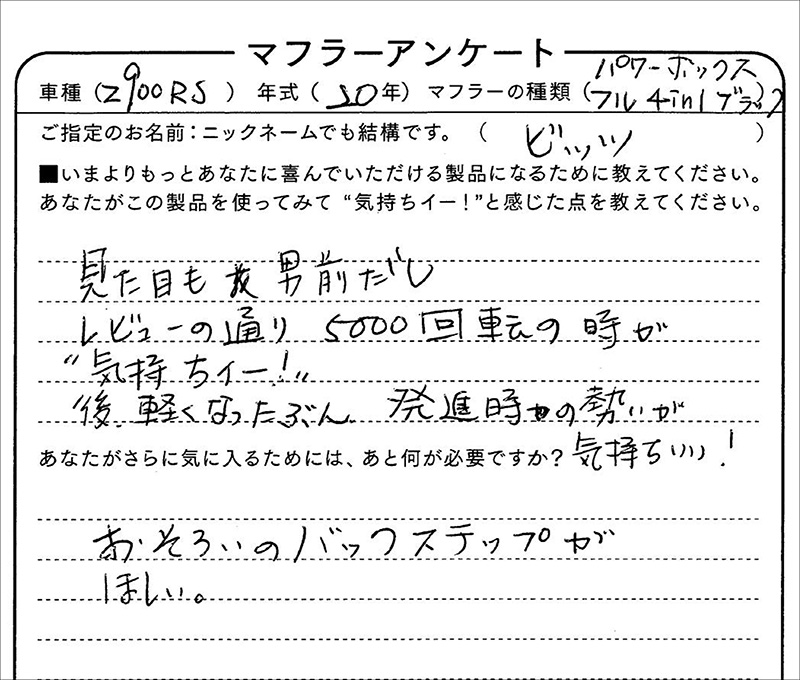 マフラーアンケート
車種（Z900RS） 年式（30年） マフラーの種類（パワーボックス フル 4in1 ブラック）
ご指定のお名前：ニックネームでも結構です。（ビッツ）
■いまよりもっとあなたに喜んでいただける製品になるために教えてください。
あなたがこの製品を使ってみて“気持ちイー！”と感じた点を教えてください。
見た目も 男前だし
レビューの通り 5000回転の時が
“気持ちイー！”
後、軽くなったぶん 発進時の勢いが
気持ちいい！
あなたがさらに気に入るためには、あと何が必要ですか？
おそろいのバックステップが
ほしい。